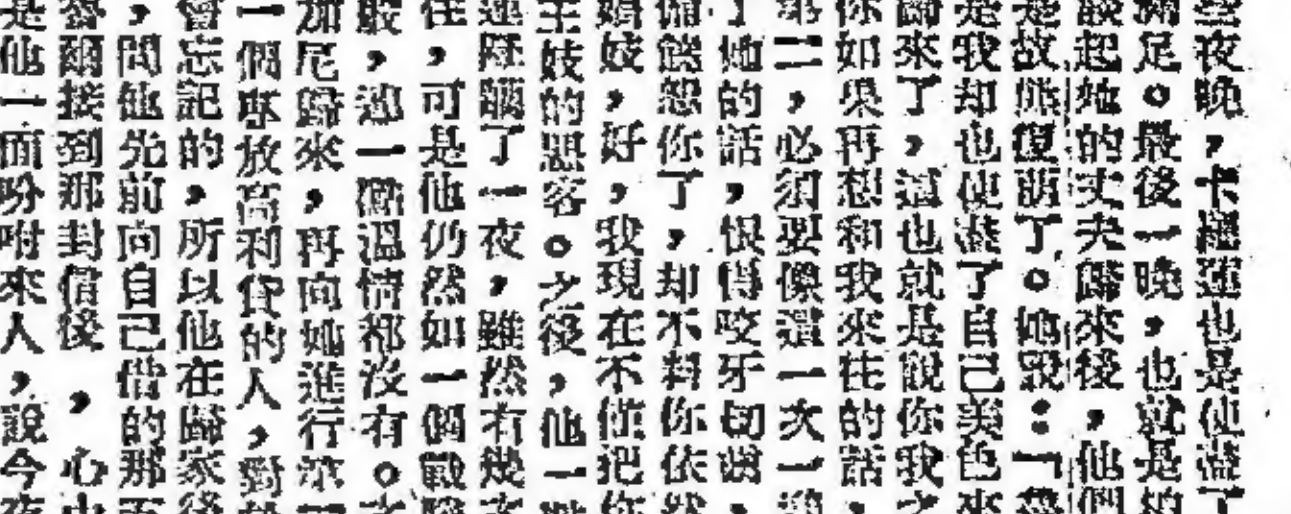 夜晚,卡蓮也是使盡了
滿足。最後一晚,也就是
起她的丈夫歸來後,他們
是故態復萌了。她說:「魯
是我却也使盡了自己美色來
歸來了,這也就是說你我之
你如果再想和我來往的話,
第二,必須要像這一次一
了她的話,恨得咬牙切齒,
饒恕你了,却不料你依然
娼妓,好,我現在不僅把你
妓的惡客。之後,他一
蓮了一夜,雖然有幾次
往,可是他仍然如一個戰
般,連一點溫情都沒有。
加尼歸來,再向她進行求
一個專放高利貸的人,對
會忘記的,所以他在歸家後
,問他先前向自己借的那
魯爾接到那封信後,心中
是他一面吩咐來人,說今夜